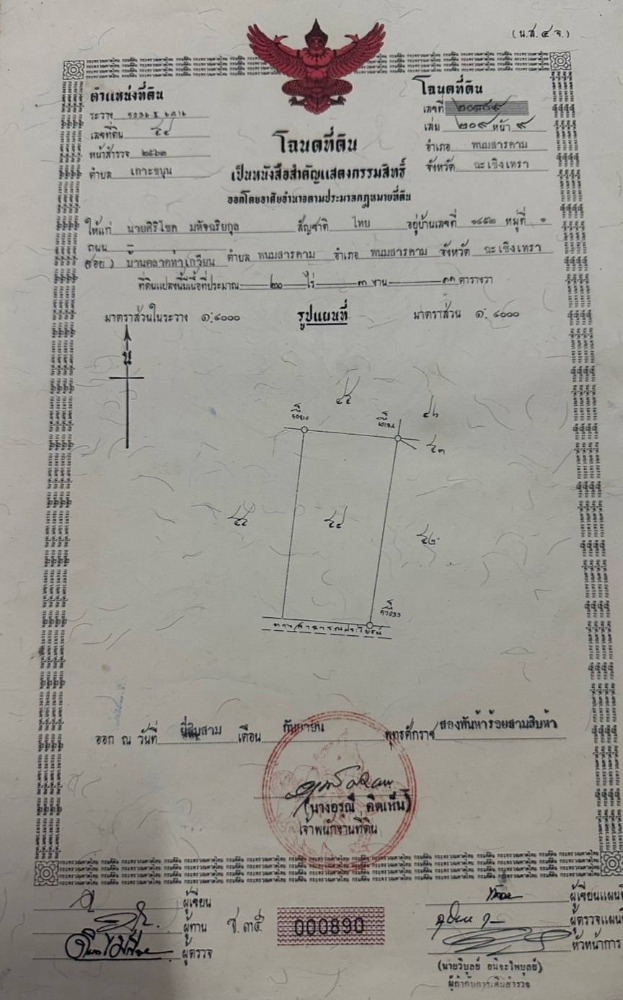 (น.ส. ๔ จ.)
ตำแหน่งที่ดิน
ระวาง
เลขที่ดิน ๕๕
หน้าสำรวจ ๒๕๖๓
ตำบล เกาะขนุน
โฉนดที่ดิน
เลขที่
เล่ม ๒๐๙ หน้า ๙
อำเภอ พนมสารคาม
จังหวัด ฉะเชิงเทรา
โฉนดที่ดิน
เป็นหนังสือสำคัญแสดงกรรมสิทธิ์
ออกโดยอาศัยอำนาจตามประมวลกฎหมายที่ดิน
ให้แก่ นายศิริโชค มหัจฉริยกุล สัญชาติ ไทย อยู่บ้านเลขที่ ๑๔๕๒ หมู่ที่ ๑
ถนน
(ซอย) บ้านตลาดท่าเกวียน ตำบล พนมสารคาม อำเภอ พนมสารคาม จังหวัด ฉะเชิงเทรา
ที่ดินแปลงนี้มีเนื้อที่ประมาณ ๒๐ ไร่ ๓ งาน ๓๓ ตารางวา
มาตราส่วนในระวาง ๑:๔๐๐๐ รูปแผนที่ มาตราส่วน ๑: ๔๐๐๐
น
ทางสาธารณประโยชน์
ออก ณ วันที่ ยี่สิบสาม เดือน กันยายน พุทธศักราช สองพันห้าร้อยสามสิบห้า
(นางอรุณี คิดเห็น)
เจ้าพนักงานที่ดิน
ผู้เขียน
ผู้ทาน
ผู้ตรวจ
ช.๓๕
000890
ผู้เขียนแผนที่
ผู้ตรวจแผนที่
หัวหน้าการ
ผู้กำกับการเดินสำรวจ